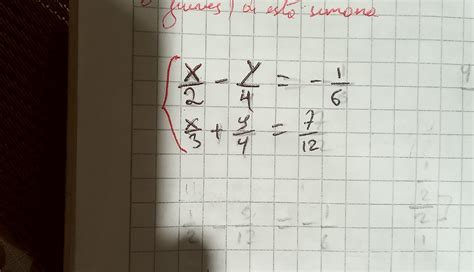 jueves) de esta semana
x/2 - y/4 = - 1/6
x/3 + y/4 = 7/12